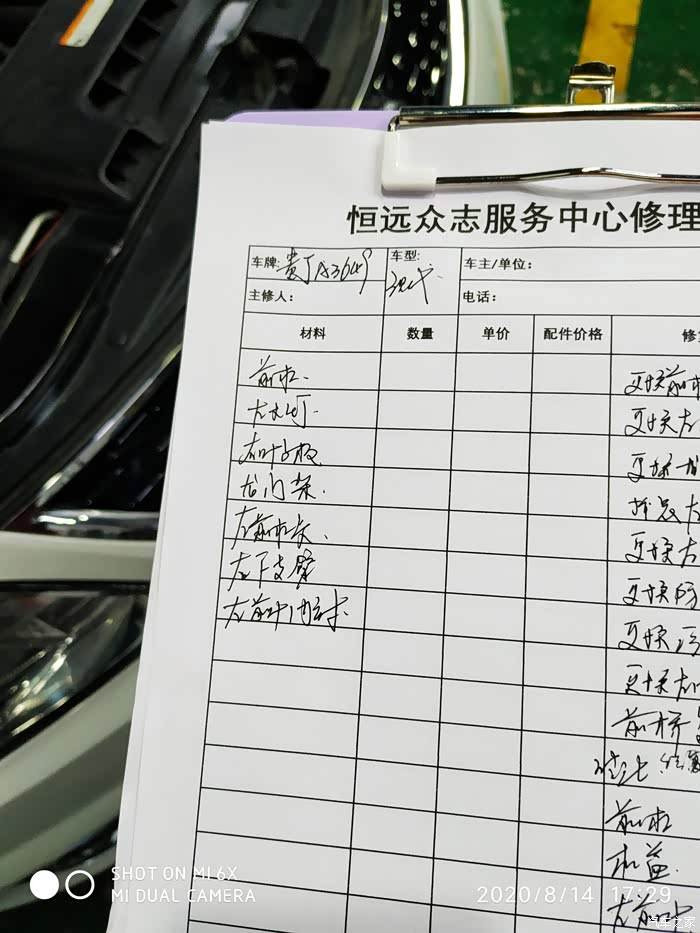 恒远众志服务中心修理
车牌: 贵J A3649 车型: 现代 车主/单位:
主修人: 电话:
材料 数量 单价 配件价格 修
前杠 更换前杠
左大灯 更换左
右叶子板 更换
龙门架
左前 更换左
左下支臂 更换
左前叶内衬 更换
更换左
前桥
前杠
机盖
左前叶
SHOT ON MI 6X
MI DUAL CAMERA
2020/8/14 17:29
汽车之家